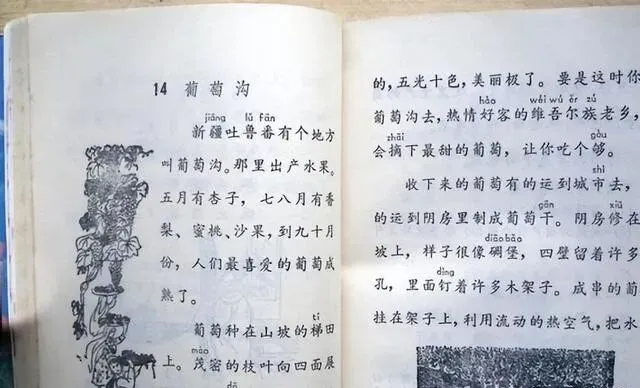 14 葡萄沟
jiāng lǔ fān
新疆吐鲁番有个地方
叫葡萄沟。那里出产水果。
五月有杏子，七八月有香
梨、蜜桃、沙果，到九十月
份，人们最喜爱的葡萄成
熟了。
tī
葡萄种在山坡的梯田
mào
上。茂密的枝叶向四面展
的，五光十色，美丽极了。要是这时你
hào wéi wú ěr zú
葡萄沟去，热情好客的维吾尔族老乡，
zhāi gòu
会摘下最甜的葡萄，让你吃个够。
shì
收下来的葡萄有的运到城市去，
gān xiū
的运到阴房里制成葡萄干。阴房修在
diāo bǎo
坡上，样子很像碉堡，四壁留着许多
dìng
孔，里面钉着许多木架子。成串的葡
挂在架子上，利用流动的热空气，把水